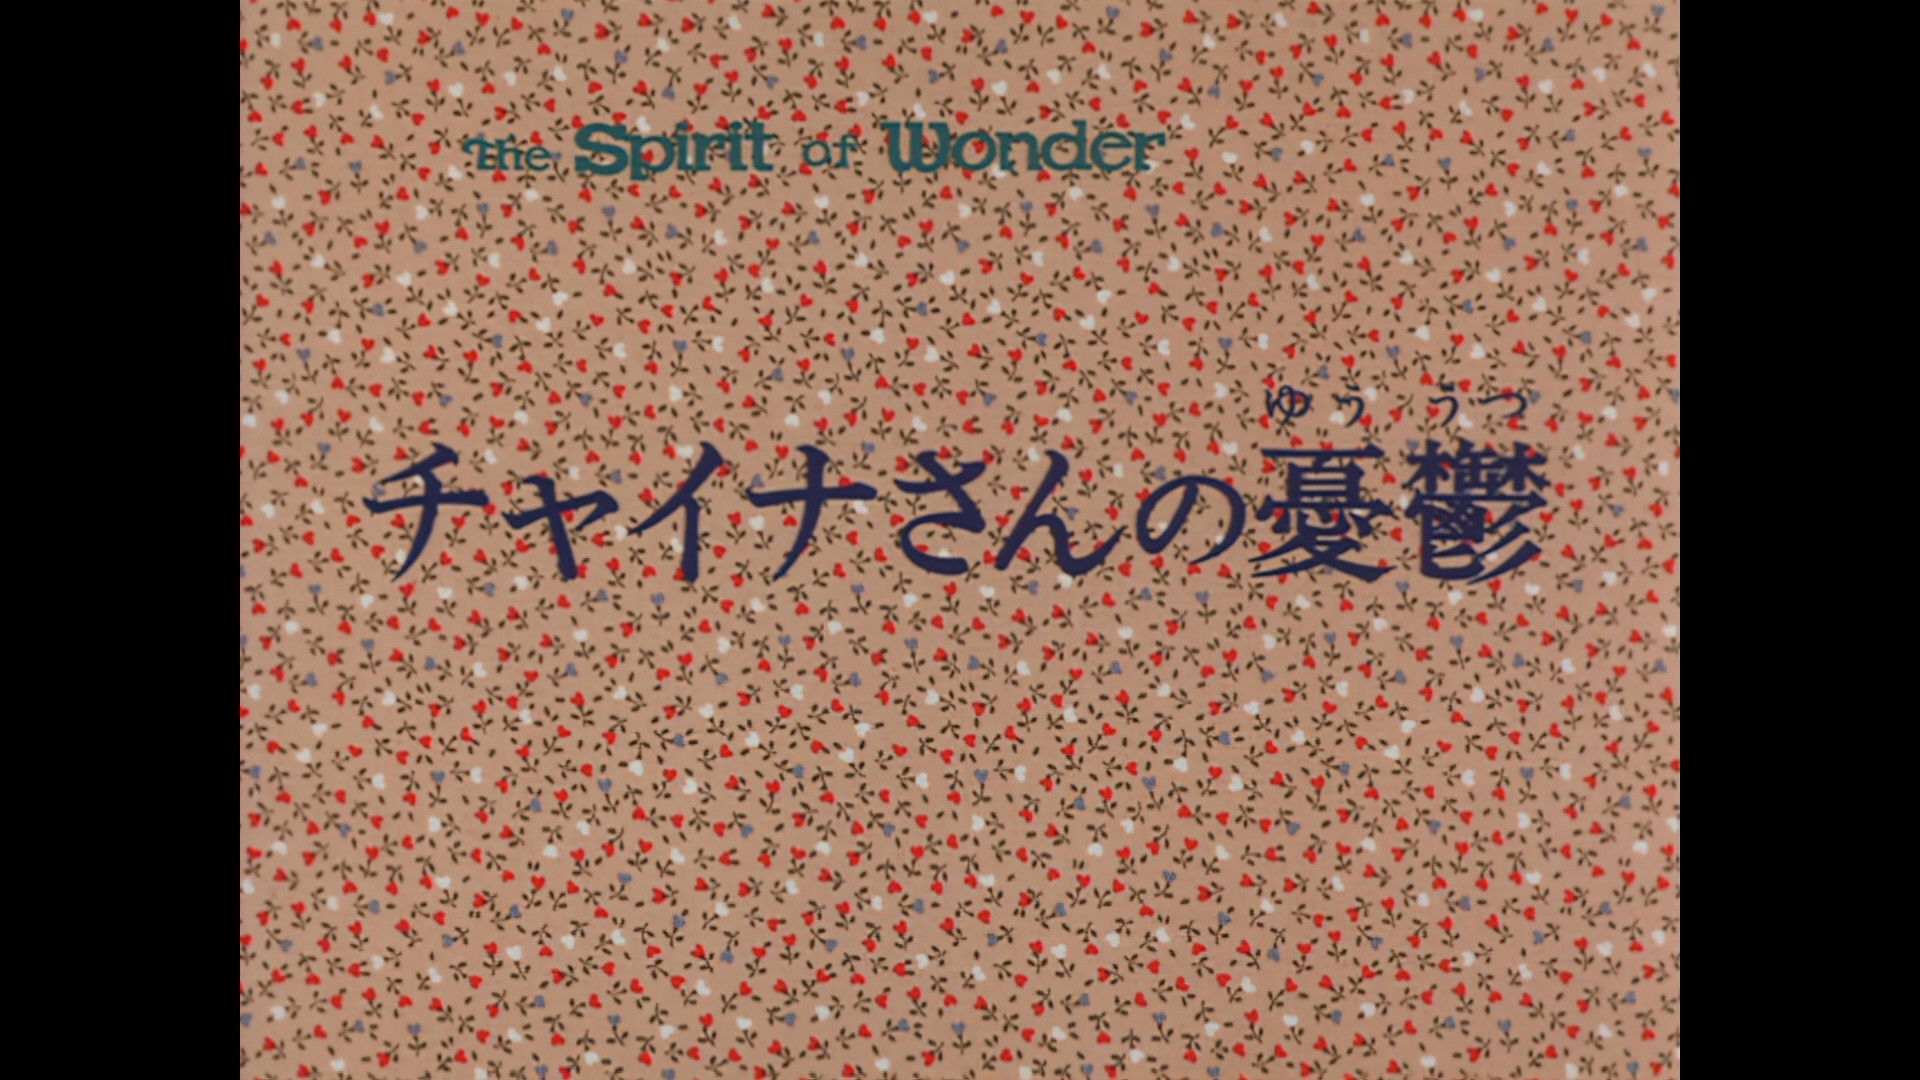 The Spirit of Wonder
ゆううつ
チャイナさんの憂鬱